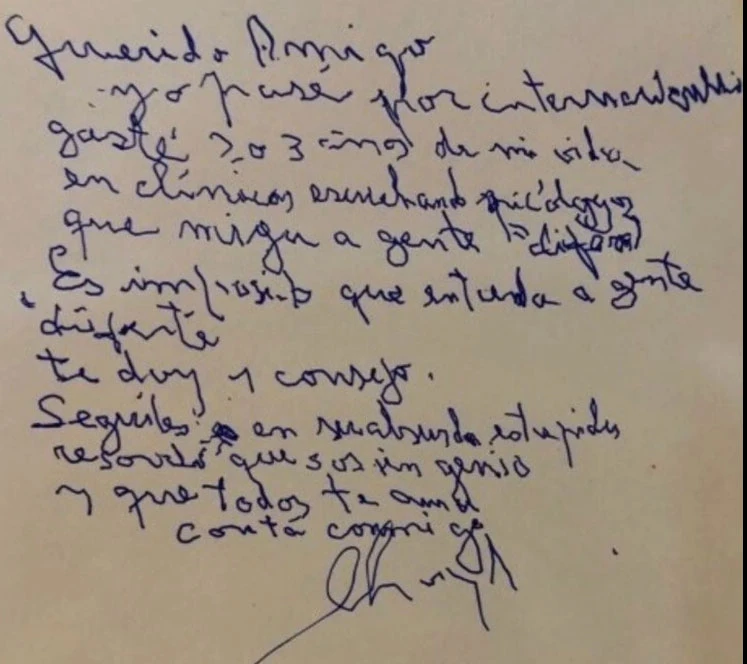 Querido Amigo
yo pasé por
gasté 2 o 3 años de mi vida
en clínicas escuchando psicólogos
que a gente
Es imposible que entienda a gente
te doy 1 consejo.
Seguiles en su absurda estupidez
que sos un genio
y que todos te aman
contá conmigo